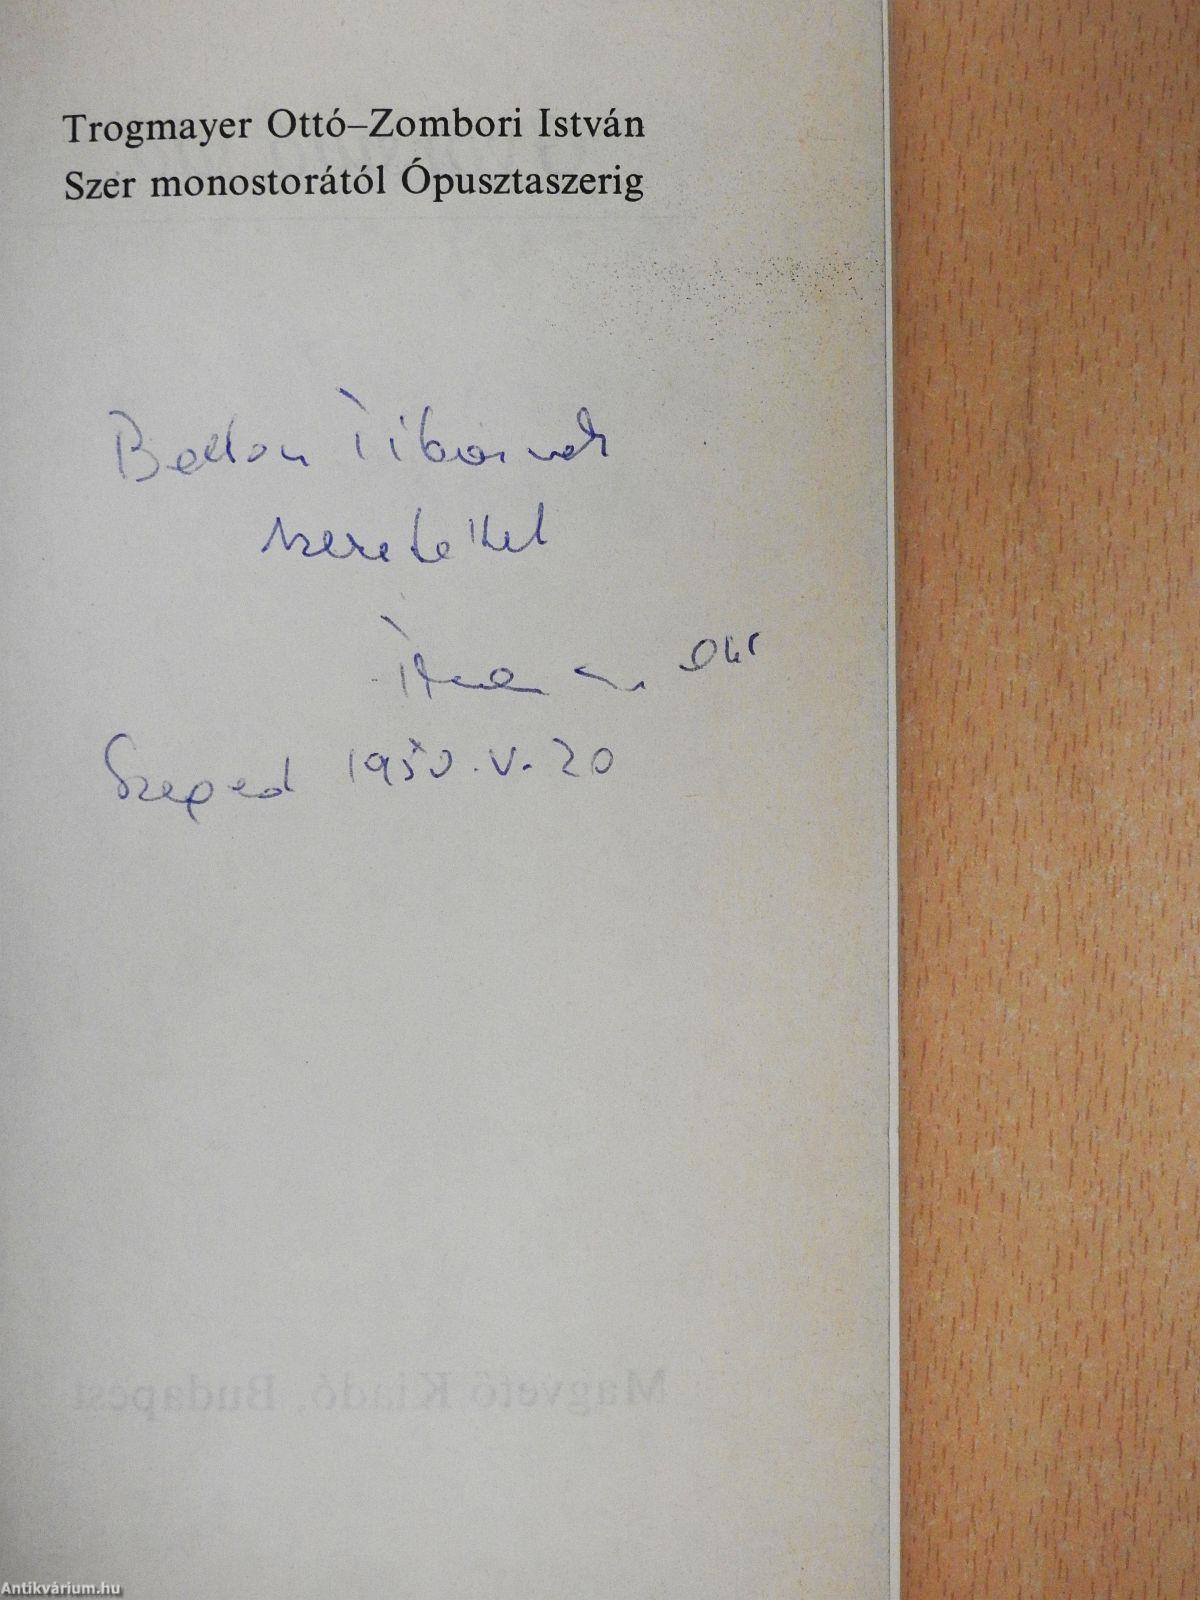 Trogmayer Ottó–Zombori István
Szer monostorától Ópusztaszerig
Tibornak
szeretettel
Szeged 1980.V.20
Magvető Kiadó, Budapest
Antikvárium.hu